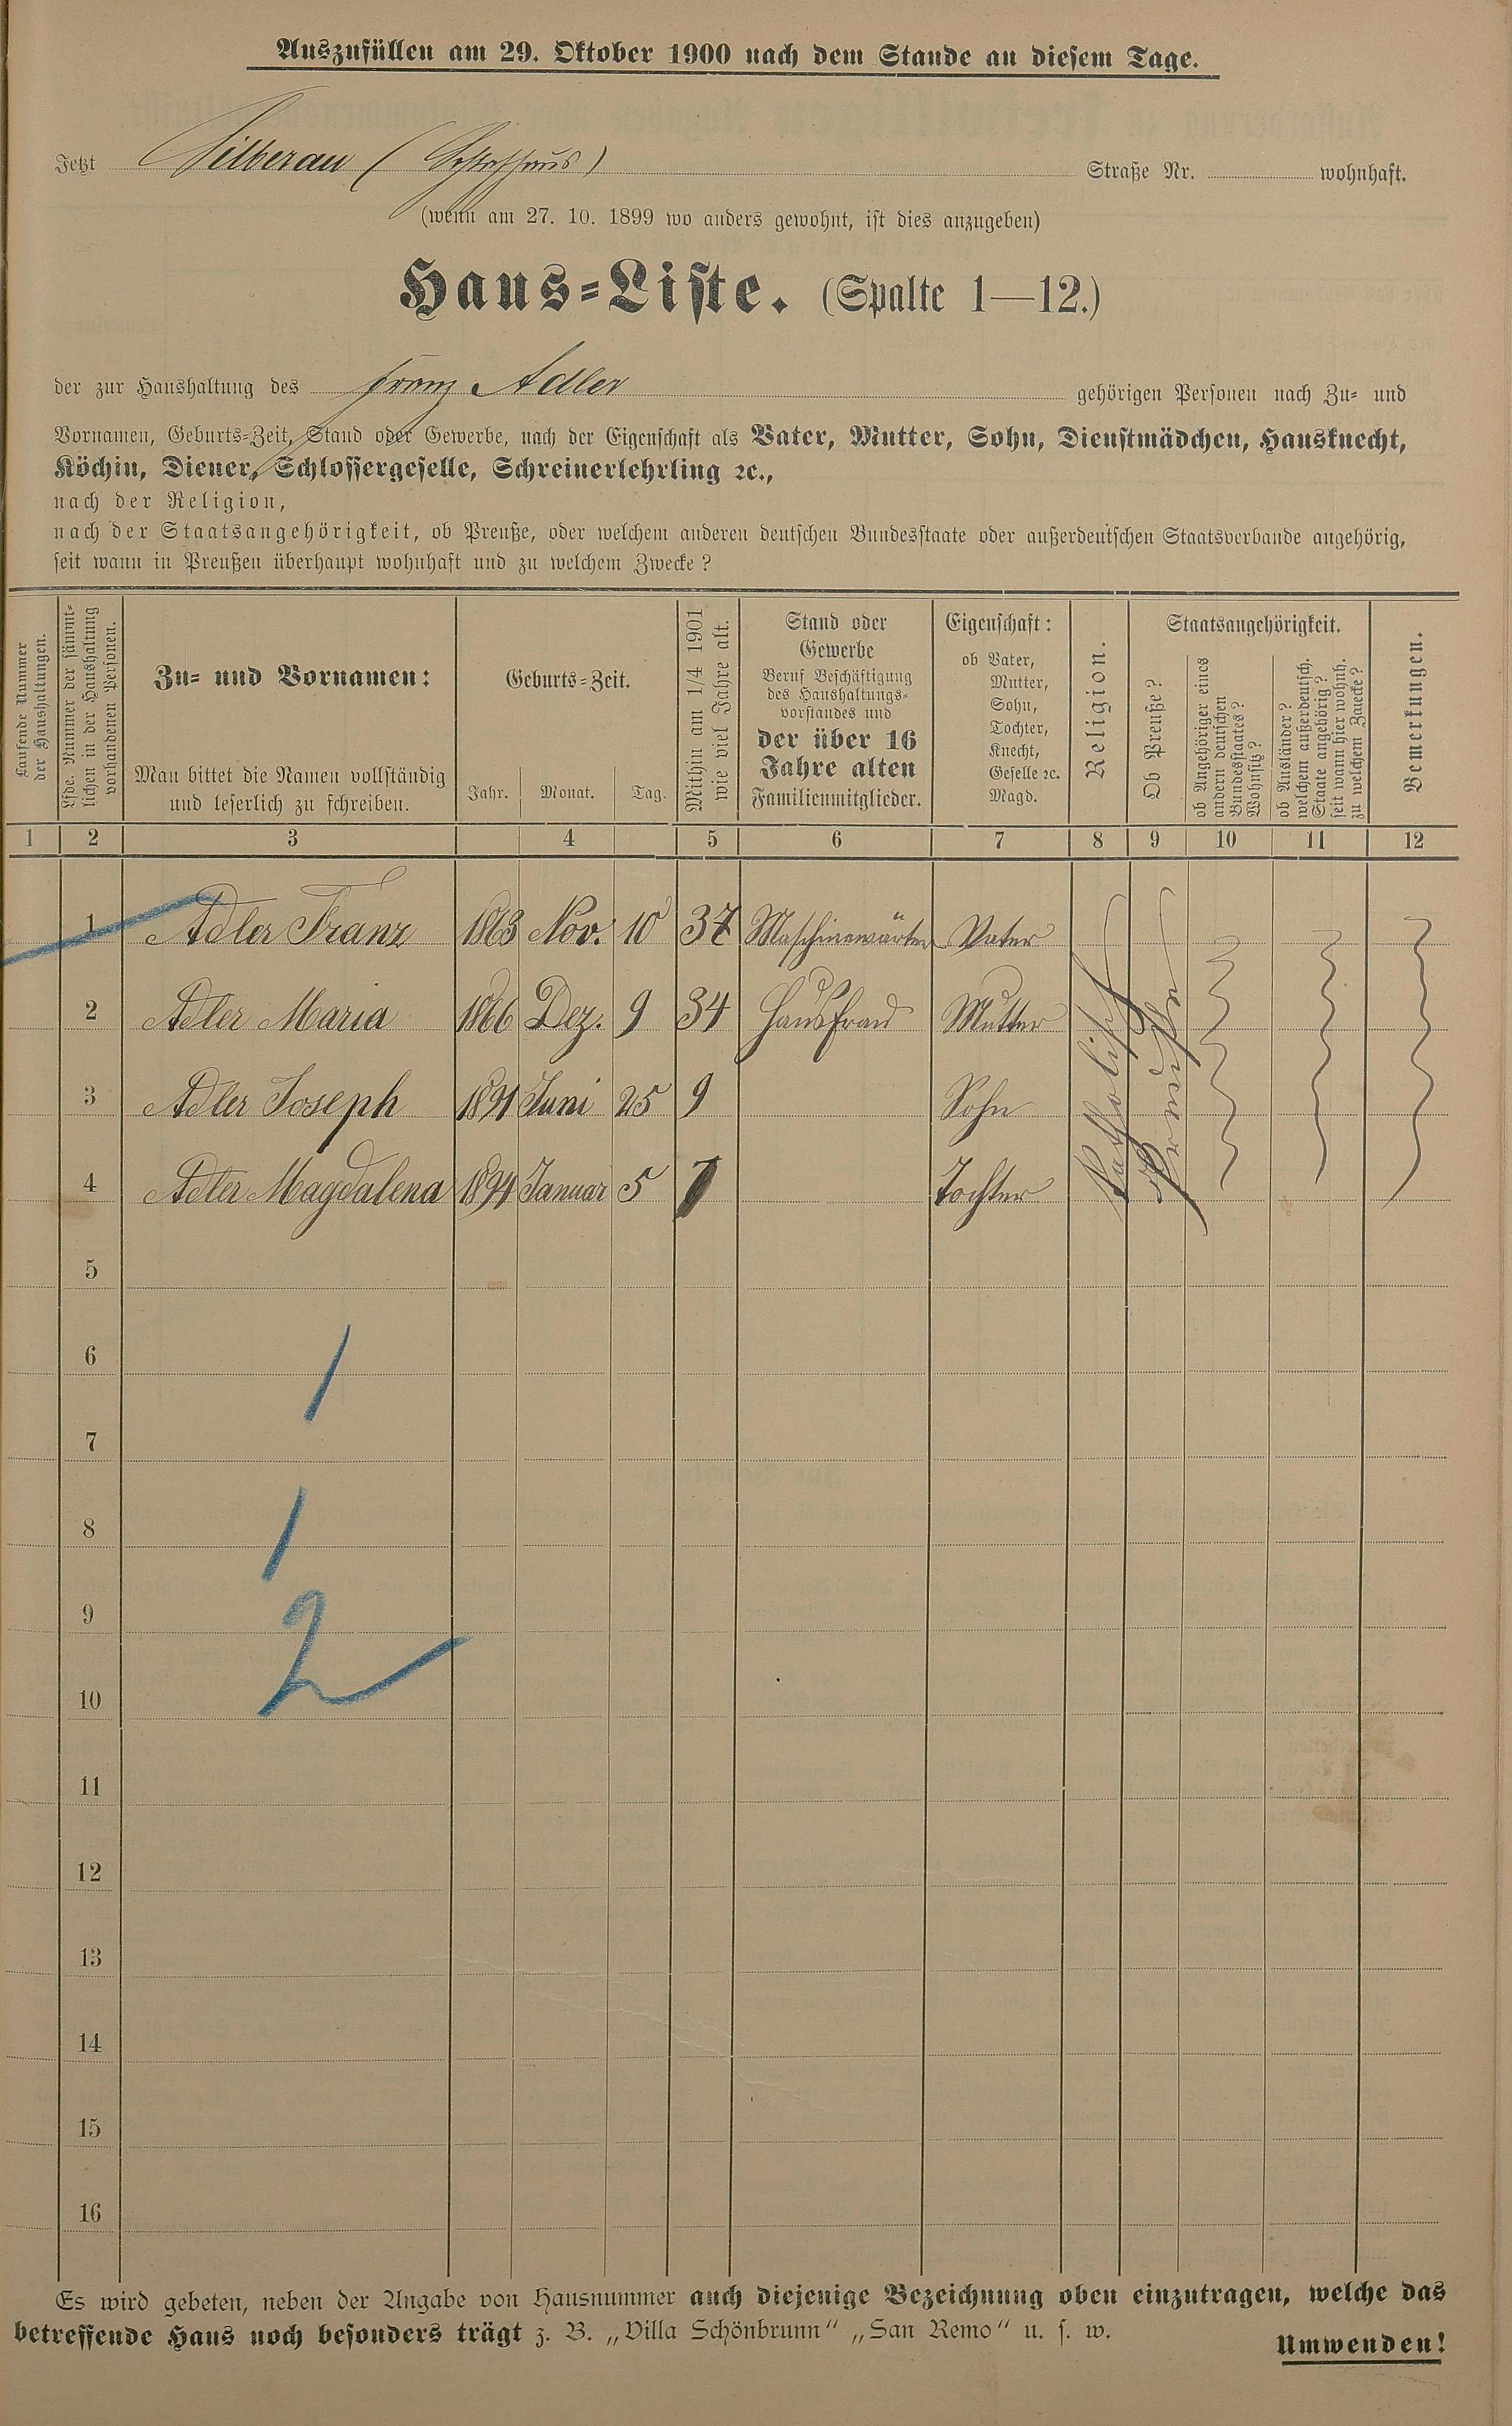 Auszufüllen am 29. Oktober 1900 nach dem Stande an diesem Tage.
Jetzt Silberau ( ) Straße Nr. wohnhaft.
(wenn am 27. 10. 1899 wo anders gewohnt, ist dies anzugeben)
Haus-Liste. (Spalte 1—12.)
der zur Haushaltung des Franz Adler gehörigen Personen nach Zu- und
Vornamen, Geburts-Zeit, Stand oder Gewerbe, nach der Eigenschaft als Vater, Mutter, Sohn, Dienstmädchen, Hausknecht,
Köchin, Diener, Schlossergeselle, Schreinerlehrling ꝛc.,
nach der Religion,
nach der Staatsangehörigkeit, ob Preuße, oder welchem anderen deutschen Bundesstaate oder außerdeutschen Staatsverbande angehörig,
seit wann in Preußen überhaupt wohnhaft und zu welchem Zwecke?
Laufende Nummer
der Haushaltungen.
Lfde. Nummer der sämmt-
lichen in der Haushaltung
vorhandenen Personen.
Zu- und Vornamen:
Man bittet die Namen vollständig
und leserlich zu schreiben.
Geburts-Zeit.
Jahr. Monat. Tag.
Mithin am 1/4 1901
wie viel Jahre alt.
Stand oder
Gewerbe
Beruf Beschäftigung
des Haushaltungs-
vorstandes und
der über 16
Jahre alten
Familienmitglieder.
Eigenschaft:
ob Vater,
Mutter,
Sohn,
Tochter,
Knecht,
Geselle ꝛc.
Magd.
Religion.
Staatsangehörigkeit.
Ob Preuße?
ob Angehöriger eines
andern deutschen
Bundesstaates?
Wohnsitz?
ob Ausländer?
welchem außerdeutsch.
Staate angehörig?
seit wann hier wohnh.
zu welchem Zwecke?
Bemerkungen.
1 2 3 4 5 6 7 8 9 10 11 12
1 Adler Franz 1863 Nov. 10 37 Maschinenwärter Vater
2 Adler Maria 1866 Dez. 9 34 Hausfrau Mutter
3 Adler Joseph 1891 Juni 25 9 Sohn
4 Adler Magdalena 1894 Januar 5 7 Tochter
Katholisch
5
6
1
7
8
1
9
2
10
11
12
13
14
15
16
Es wird gebeten, neben der Angabe von Hausnummer auch diejenige Bezeichnung oben einzutragen, welche das
betreffende Haus noch besonders trägt z. B. „Villa Schönbrunn“ „San Remo“ u. s. w.
Umwenden!